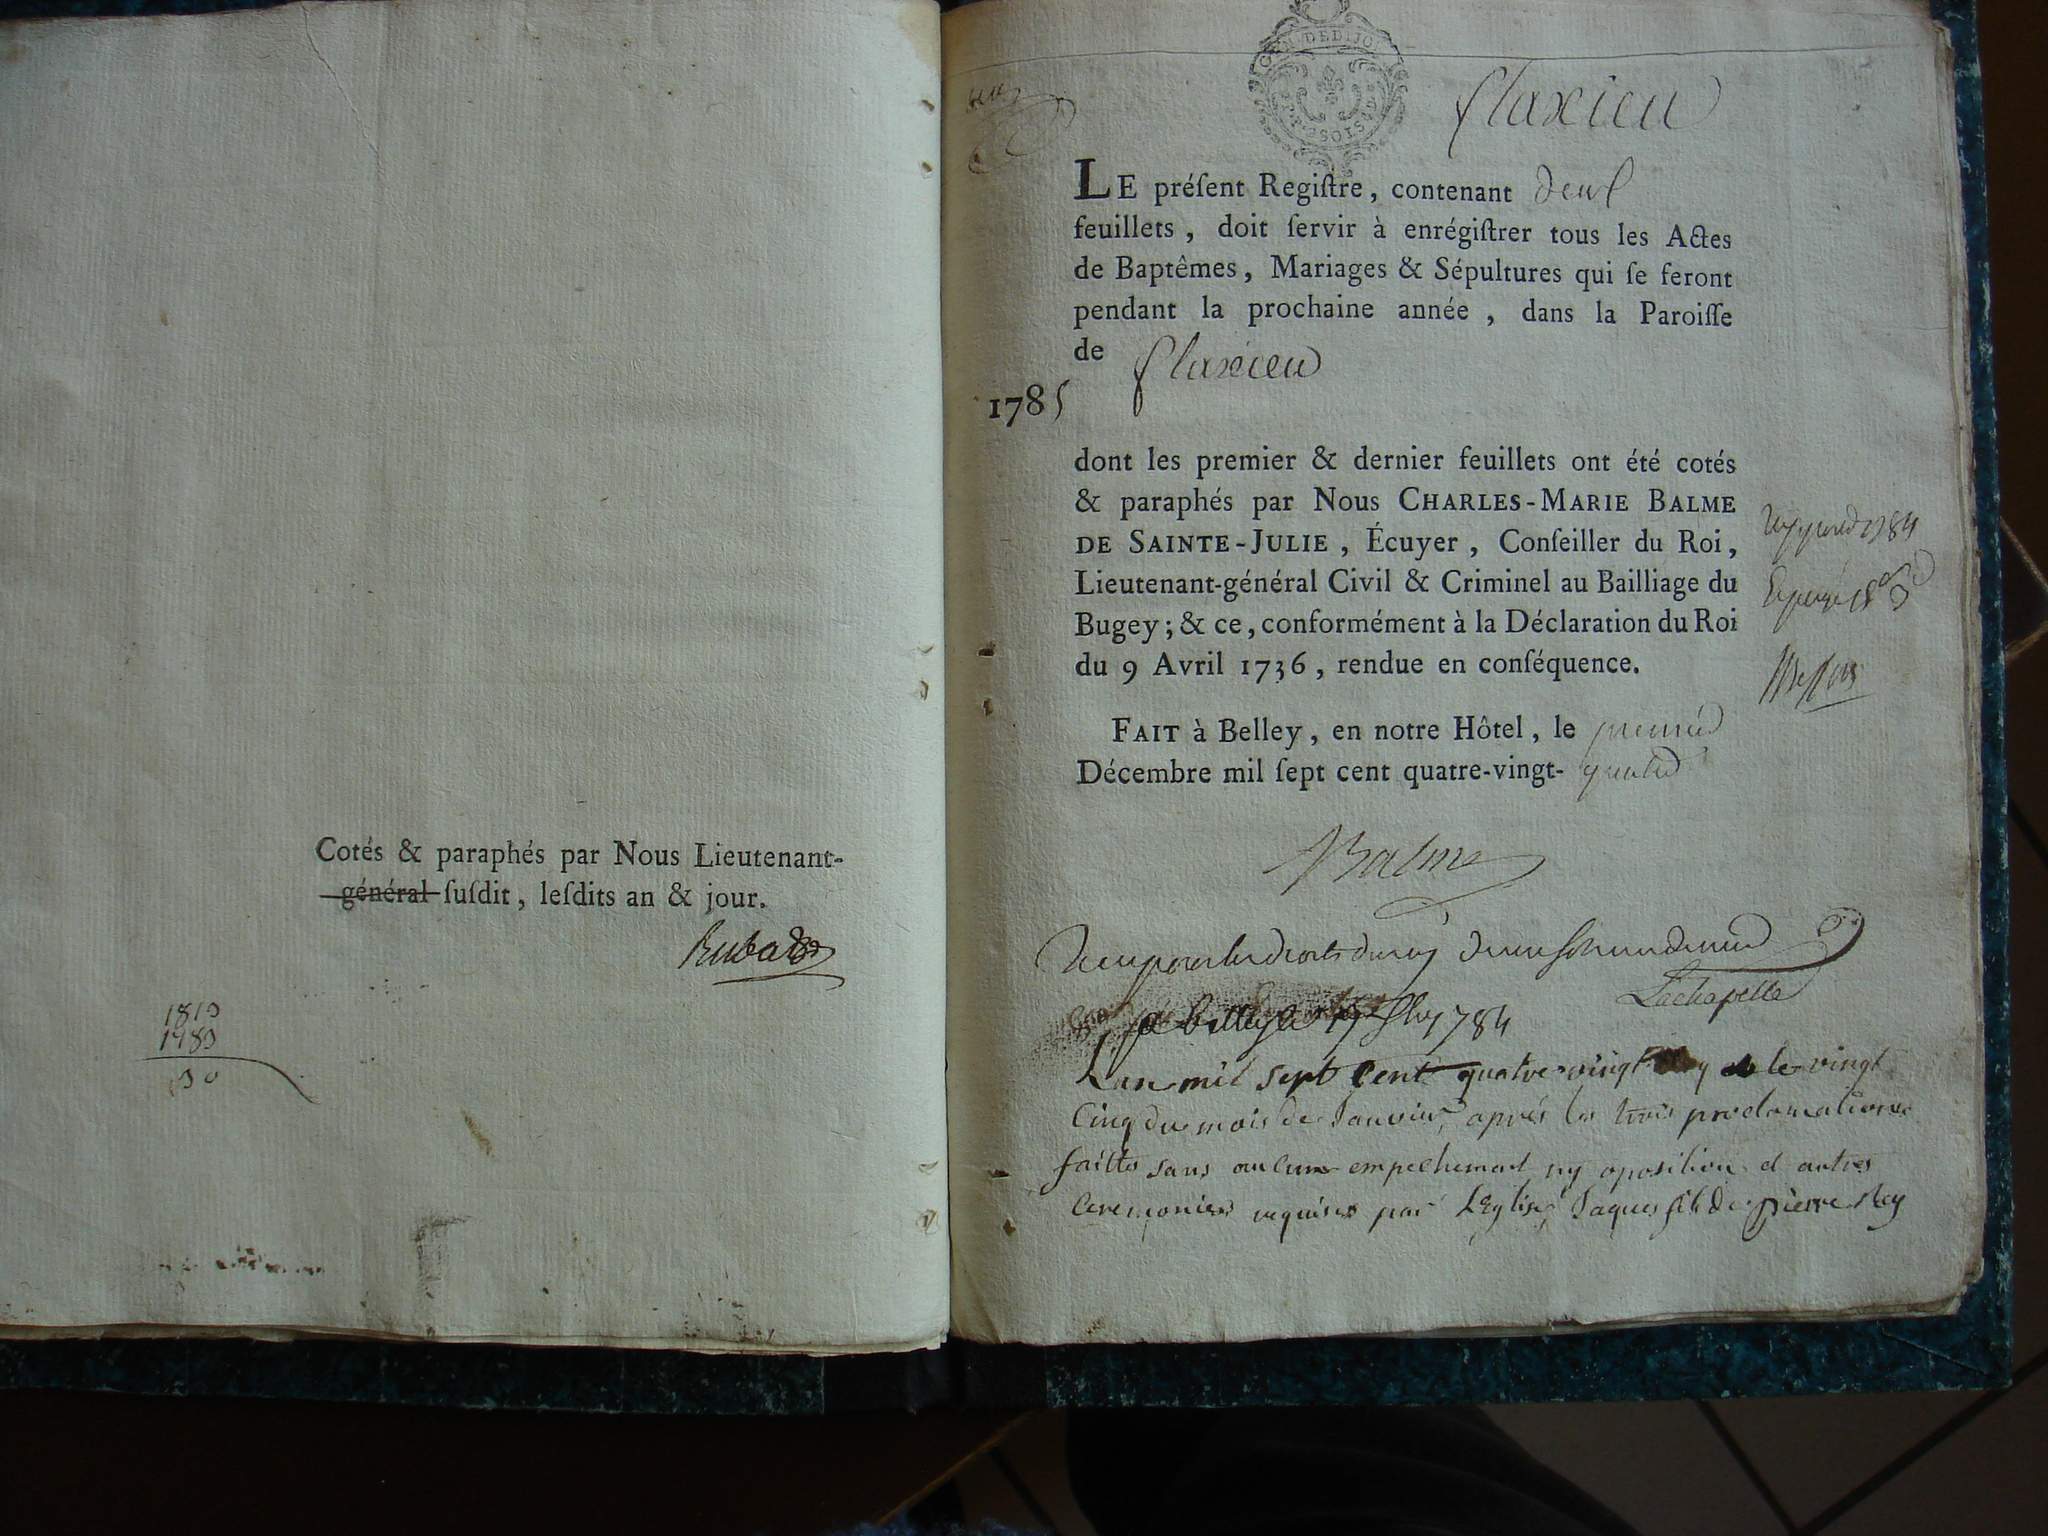 Cotés & paraphés par Nous Lieutenant-
général ſuſdit, leſdits an & jour.
1810
1780
30
flaxieu
LE préſent Regiſtre, contenant deux
feuillets, doit ſervir à enrégiſtrer tous les Actes
de Baptêmes, Mariages & Sépultures qui ſe feront
pendant la prochaine année, dans la Paroiſſe
de flaxieu
1785
dont les premier & dernier feuillets ont été cotés
& paraphés par Nous CHARLES-MARIE BALME
DE SAINTE-JULIE, Écuyer, Conſeiller du Roi,
Lieutenant-général Civil & Criminel au Bailliage du
Bugey; & ce, conformément à la Déclaration du Roi
du 9 Avril 1736, rendue en conſéquence.
FAIT à Belley, en notre Hôtel, le premier
Décembre mil ſept cent quatre-vingt- quatre
Balme
Lachapelle
a belley le 19 1784
L'an mil sept cent quatre vingt le vingt
cinq du mois de Janvier, après les trois proclamations
faittes sans aucune empechement ny oposition et autres
ceremonies requises par L'Eglise, Jaques fils de pierre Rey